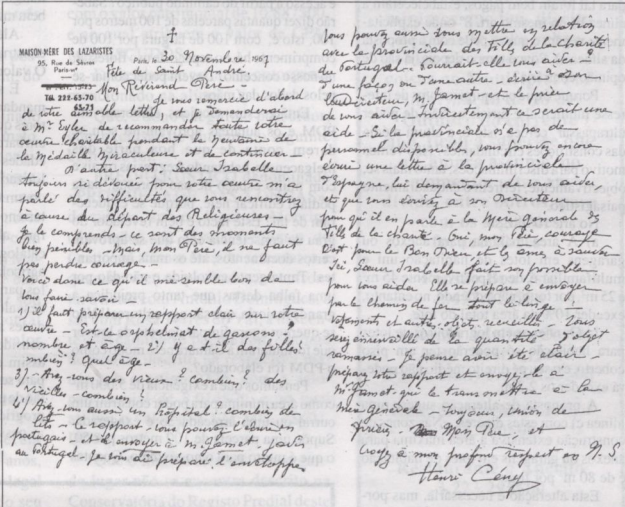 MAISON-MÈRE DES LAZARISTES
95, Rue de Sèvres
Paris-VIe
TÉL. 222-63-70
63-71
Paris, le 30 Novembre 1967
Fête de Saint André
Mon Révérend Père
Je vous remercie d'abord
de votre aimable lettre, et je demanderai
à Mr de recommander toute votre
œuvre charitable pendant la Neuvaine de
la Médaille Miraculeuse et de continuer -
D'autre part : Sœur Isabelle
toujours si dévouée pour votre œuvre m'a
parlé des difficultés que vous rencontrez
à cause du départ des Religieuses -
Je le comprends - ce sont des moments
bien pénibles - Mais, mon Père, il ne faut
pas perdre courage -
Voici donc ce qu'il me semble bon de
vous faire savoir
1) il faut préparer un rapport clair sur votre
œuvre - Est-ce orphelinat de garçons - ?
nombre et âge - 2) y a-t-il des filles ?
combien ? Quel âge -
3) - Avez-vous des vieux ? combien ? des
vieilles - combien ?
4) Avez-vous aussi un hôpital ? combien de
lits - le rapport - vous pouvez l'écrire en
portugais - et l'envoyer à M. Gamet,
au Portugal - Je vous ai préparé l'enveloppe
Vous pouvez aussi vous mettre en relation
avec la provinciale des Filles de la Charité
du Portugal - Pourrait-elle vous aider -
d'une façon ou d'une autre - écrire à son
Directeur, M. Gamet - et le prier
de vous aider - Indirectement ce serait une
aide - Si la provinciale n'a pas de
personnel disponible, vous pouvez encore
écrire une lettre à la provinciale
d'Espagne, lui demandant de vous aider,
et que vous écrivez à son Directeur
pour qu'il en parle à la Mère générale des
Filles de la charité - Oui, mon Père, courage
C'est pour le Bon Dieu et les âmes à sauver
Ici, Sœur Isabelle fait son possible
pour vous aider. Elle se prépare à envoyer
par le chemin de fer tout le linge
vêtements et autres objets recueillis - Vous
serez émerveillé de la quantité d'objets
ramassés - Je pense avoir été clair -
préparez votre rapport et envoyez-le à
M. Gamet, qui le transmettra à la
mère générale - Toujours, Union de
Prières, Mon Père, et
croyez à mon profond respect en N. S.
Henri